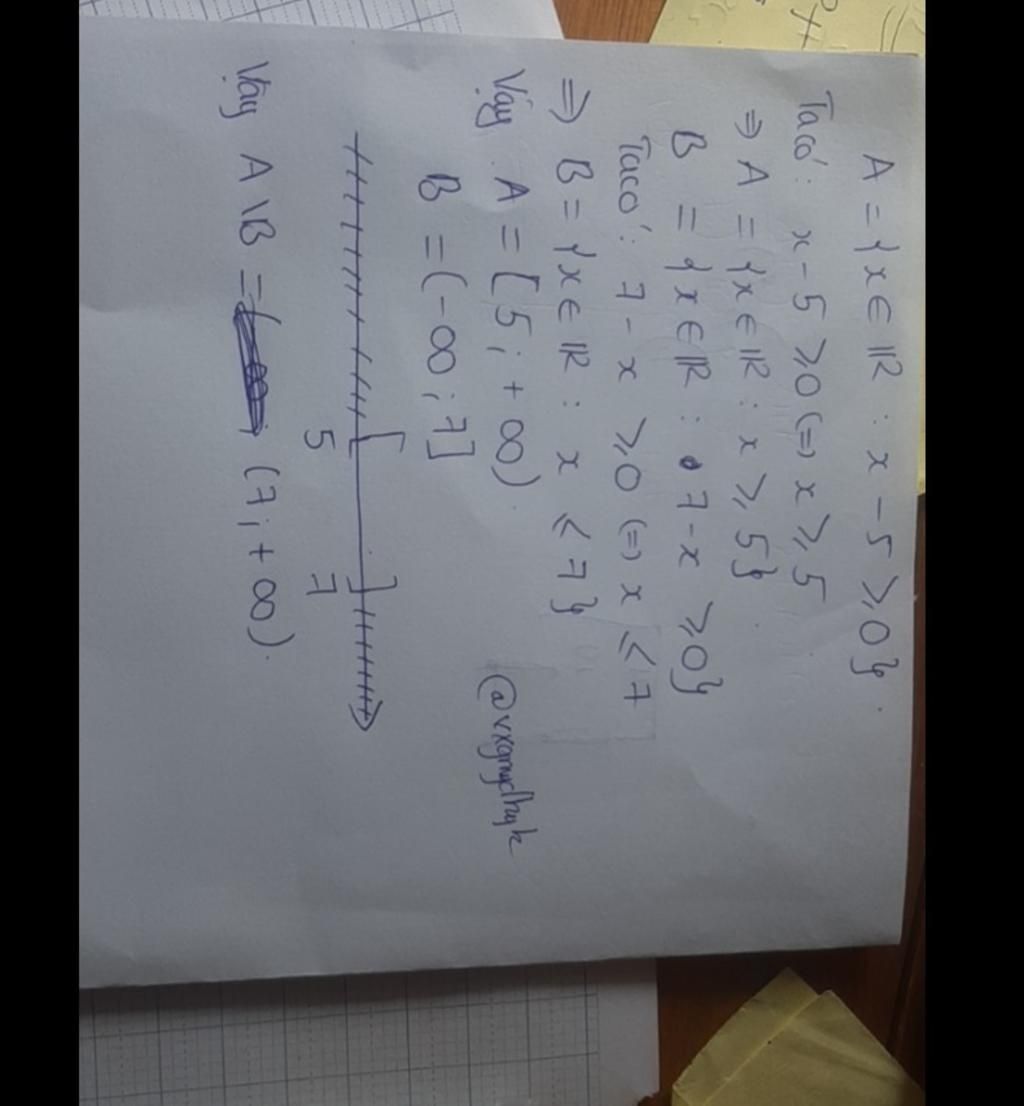 A = {x ∈ ℝ : x - 5 ⩾ 0}.
Ta có: x - 5 ⩾ 0 (=) x ⩾ 5
⇒ A = {x ∈ ℝ : x ⩾ 5}
B = {x ∈ ℝ : 7 - x ⩾ 0}
Ta có: 7 - x ⩾ 0 (=) x ⩽ 7
⇒ B = {x ∈ ℝ : x ⩽ 7}
Vậy A = [5; +∞).
B = (-∞; 7]
[ ]
5 7
Vậy A \ B = (7; +∞).